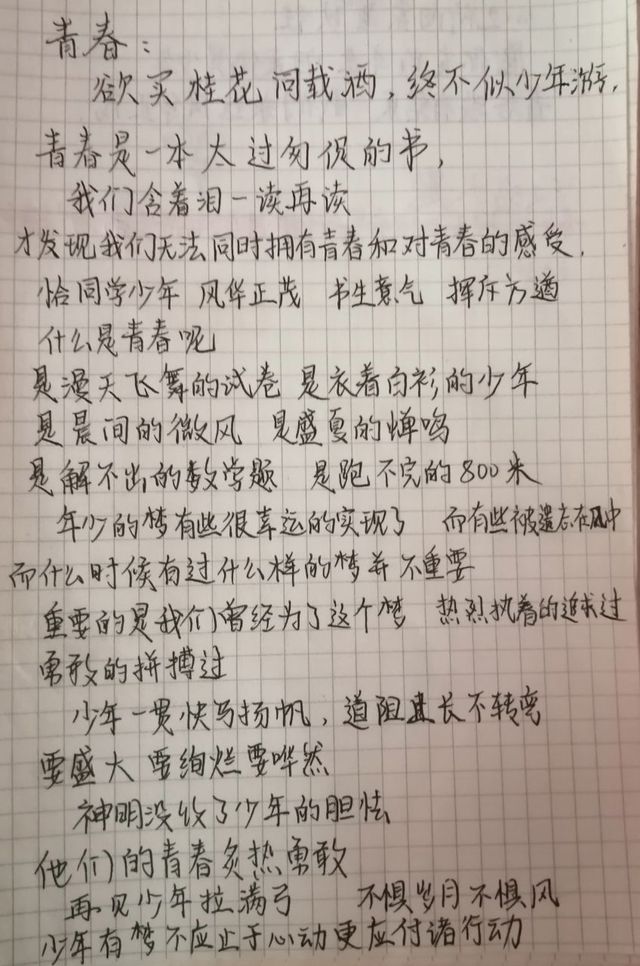 青春：
欲买桂花同载酒，终不似少年游，
青春是一本太过匆促的书，
我们含着泪一读再读
才发现我们无法同时拥有青春和对青春的感受，
恰同学少年 风华正茂 书生意气 挥斥方遒
什么是青春呢
是漫天飞舞的试卷 是衣着白衫的少年
是晨间的微风 是盛夏的蝉鸣
是解不出的数学题 是跑不完的800米
年少的梦有些很幸运的实现了 而有些被遗忘在风中
而什么时候有过什么样的梦并不重要
重要的是我们曾经为了这个梦 热烈执着的追求过
勇敢的拼搏过
少年一贯快马扬帆，道阻且长不转弯
要盛大 要绚烂要哗然
神明没收了少年的胆怯
他们的青春炙热勇敢
再见少年拉满弓 不惧岁月不惧风
少年有梦不应止于心动更应付诸行动